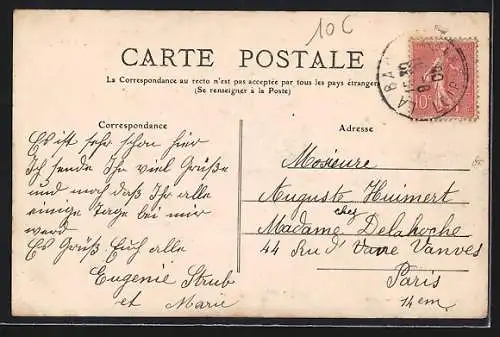 10 C
CARTE POSTALE
La Correspondance au recto n'est pas acceptée par tous les pays étrangers
(Se renseigner à la Poste)
Correspondance
Es ist sehr schon hier
Ich sende Ihr viel Grüße
und noch daß Ihr alle
einige Tage bei mir
werd
Es Grüß Euch alle
Eugenie Strub
et Marie
Adresse
Mosieure
Auguste Huimert
chez
Madame Delahoche
44 Rue d' Vanves
Paris
14em.
10